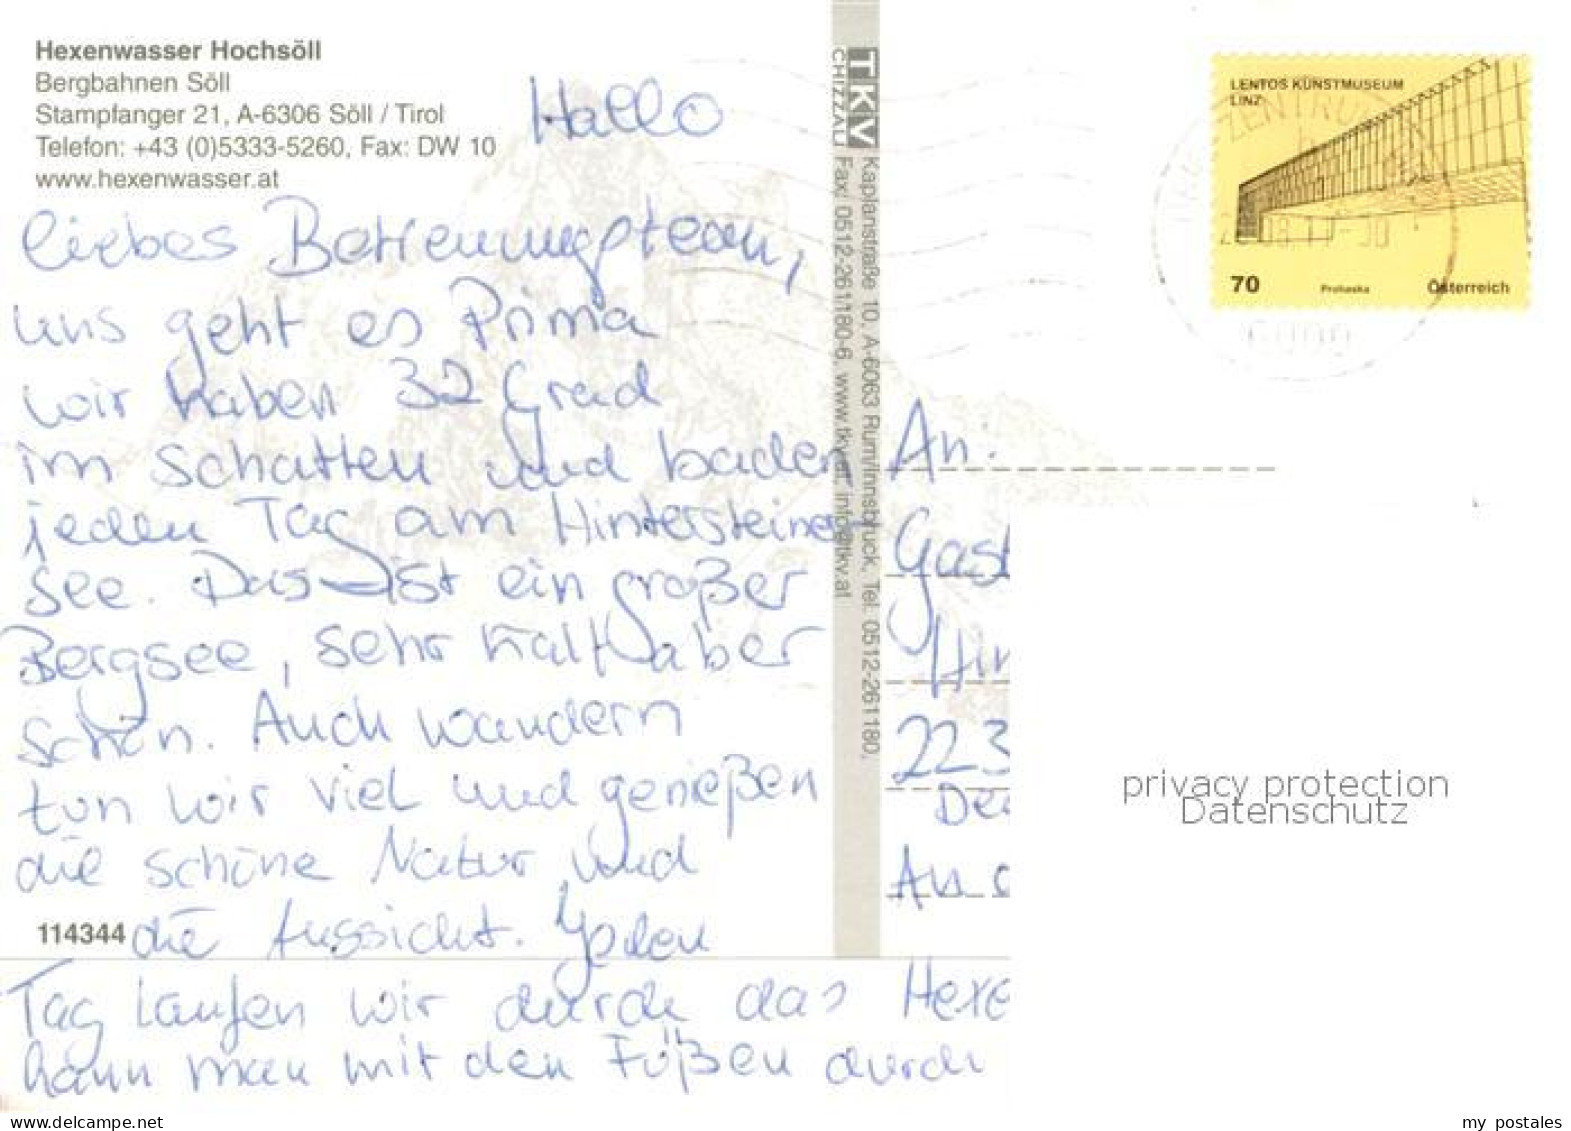 Hexenwasser Hochsöll
Bergbahnen Söll
Stampfanger 21, A-6306 Söll / Tirol
Telefon: +43 (0)5333-5260, Fax: DW 10
www.hexenwasser.at
Hallo
liebes Betreuungsteam,
uns geht es Prima
wir haben 32 Grad
im Schatten und baden
jeden Tag am Hintersteiner
See. Das ist ein großer
Bergsee, sehr kalt aber
schön. Auch wandern
tun wir viel und genießen
die schöne Natur und
die Aussicht. Jeden
Tag laufen wir durch das Hexe
kann man mit den Füßen durch
114344
TKV
CHIZZALI
Kaplanstraße 10, A-6063 Rum/Innsbruck, Tel. 0512-261180,
Fax: 0512-261180-6, www.tkv.at, info@tkv.at
LENTOS KUNSTMUSEUM
LINZ
70 Prohaska Österreich
An.
Gast
Hin
223
An
privacy protection
Datenschutz
www.delcampe.net
my_postales